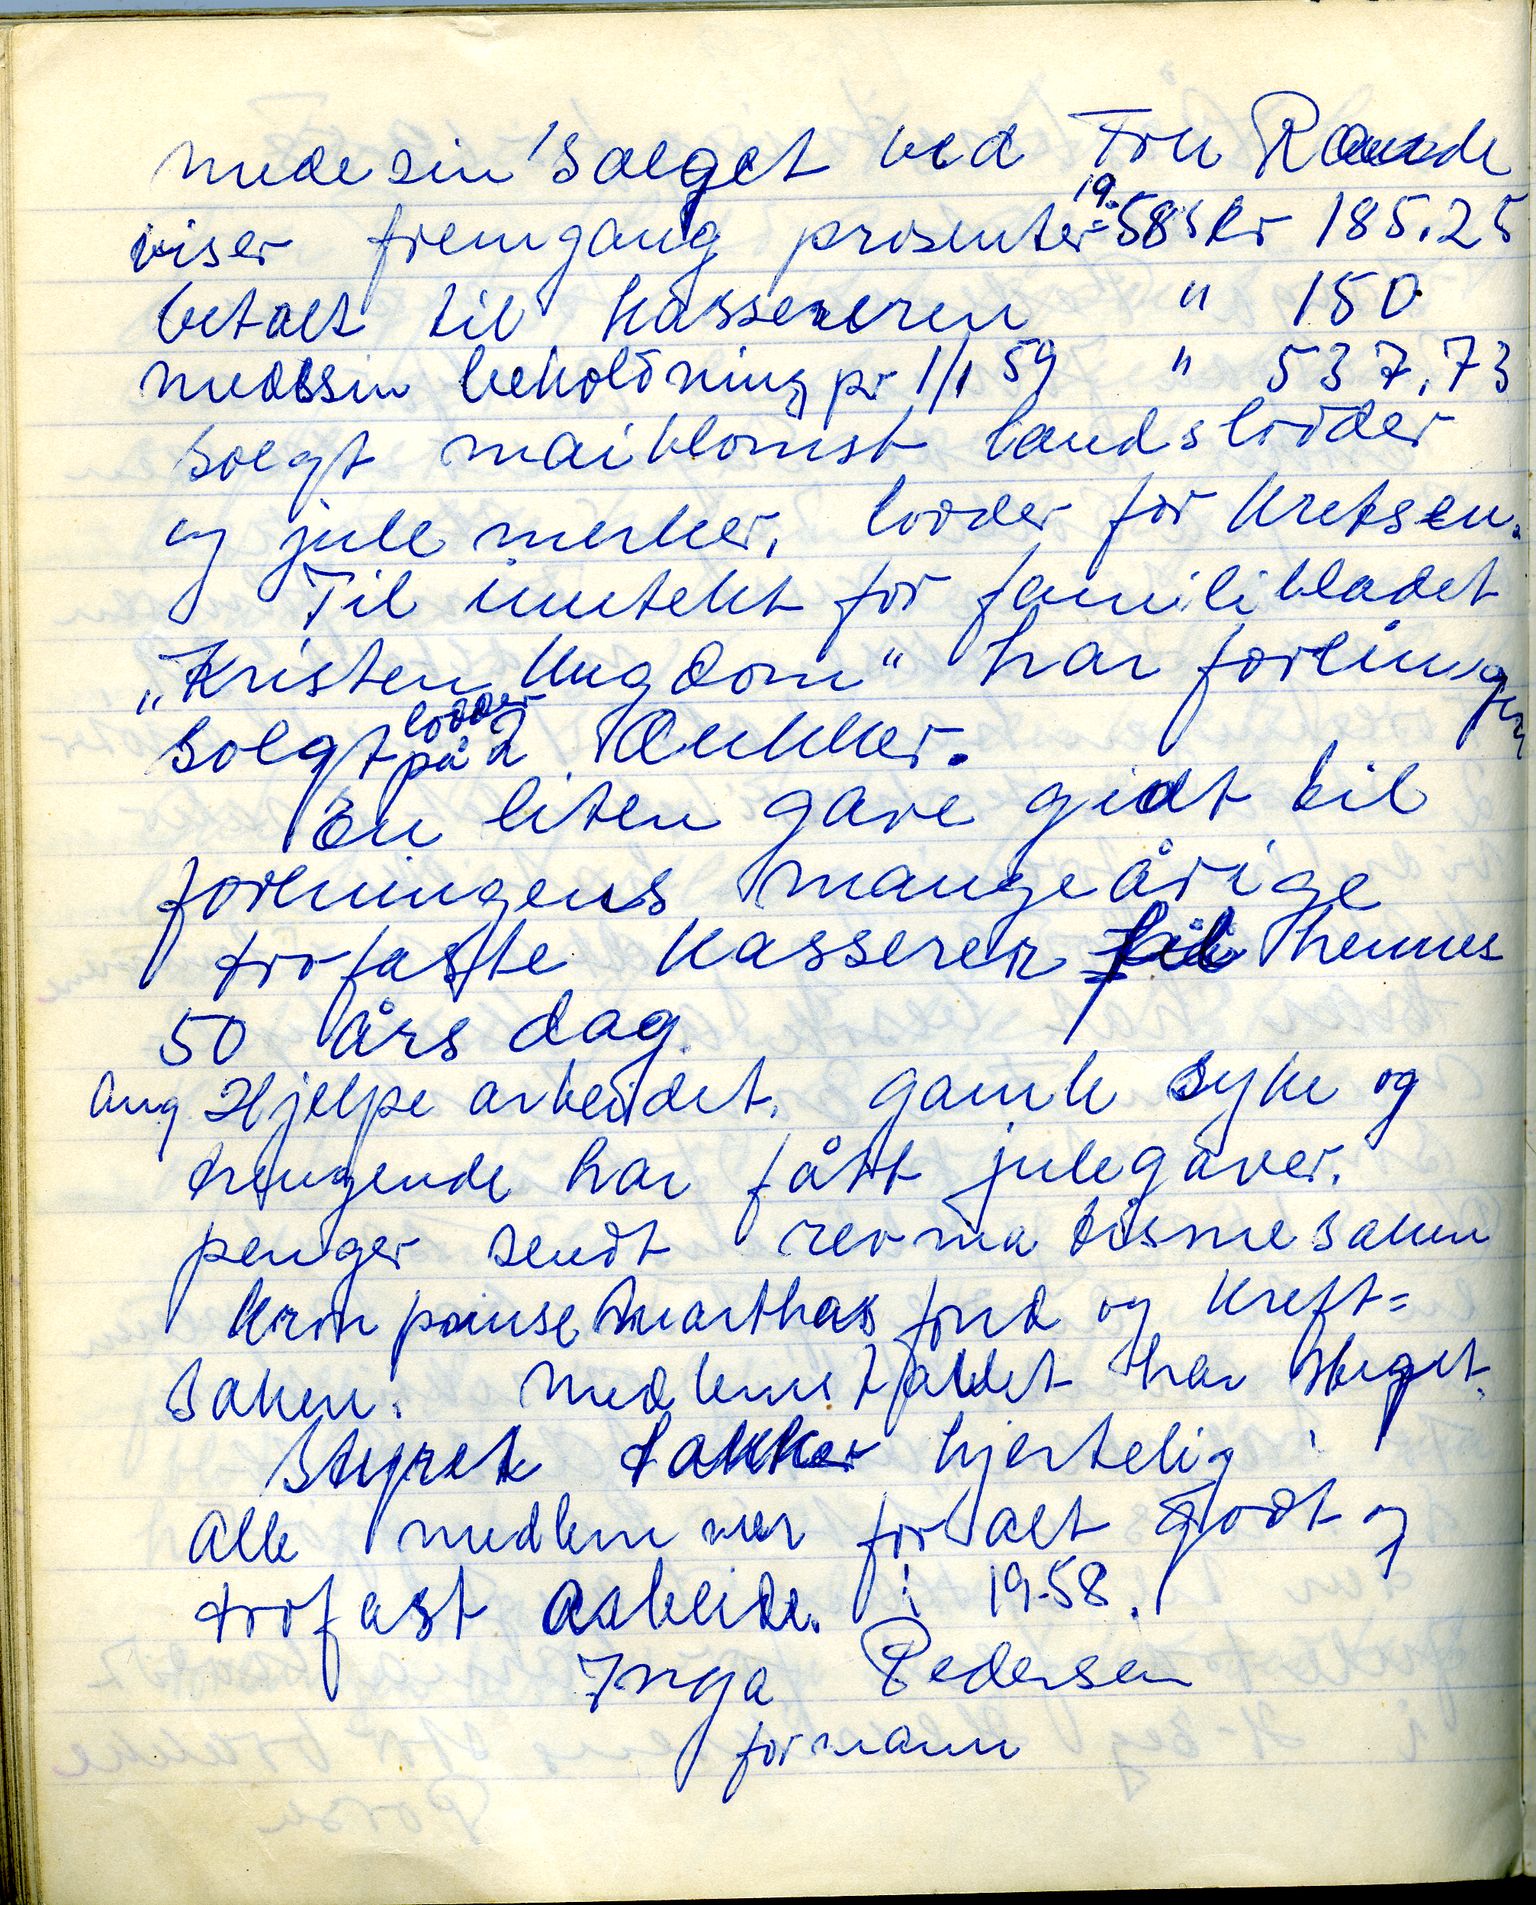 medesin salget ved Fru
viser fremgang prosenter 19.58 kr 185.25
betalt til Kassereren " 150
medsin beholdning pr 1/1 59 " 537,73
solgt maiblomst landslodder
og jule merker, lodder for Kretsen.
Til inntekt for familibladet
„Kristen Ungdom" har foreningen
solgt lodder på 2 Dukker.
En liten gave gidt til
foreningens mangeårige
trofaste Kasserer til hennes
50 års dag.
ang Hjelpe arbeidet. gamle syke og
trengende har fått julegaver.
penger sendt revmatismesaken
Kronprinse Marthas fond og Kreft=
saken. Medlemstallet har steget.
Styret takker hjertelig
alle medlemmer for alt godt og
trofast arbeide. i 1958.
Inga Pedersen
formann